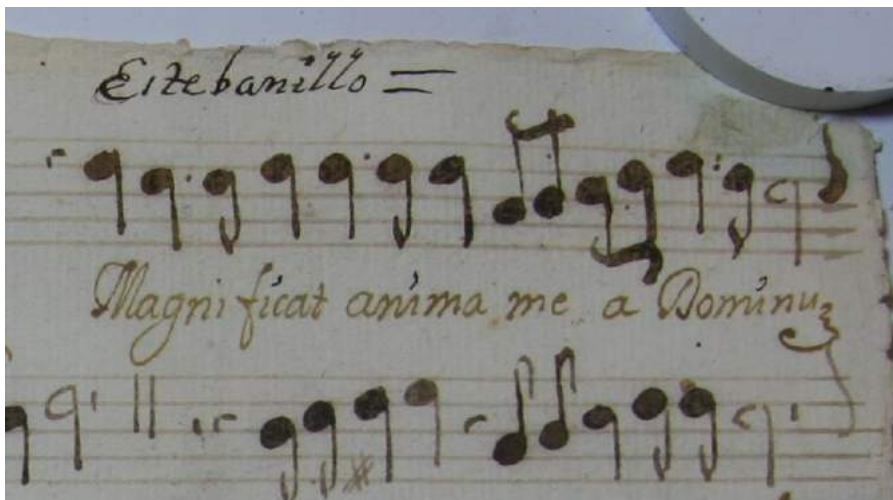 Estebanillo =
Magnificat anima me a Dominu